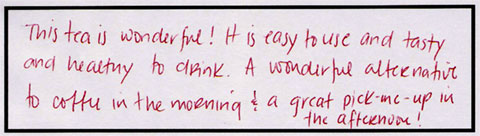 This tea is wonderful! It is easy to use and tasty
and healthy to drink. A wonderful alternative
to coffee in the morning & a great pick-me-up in
the afternoon!